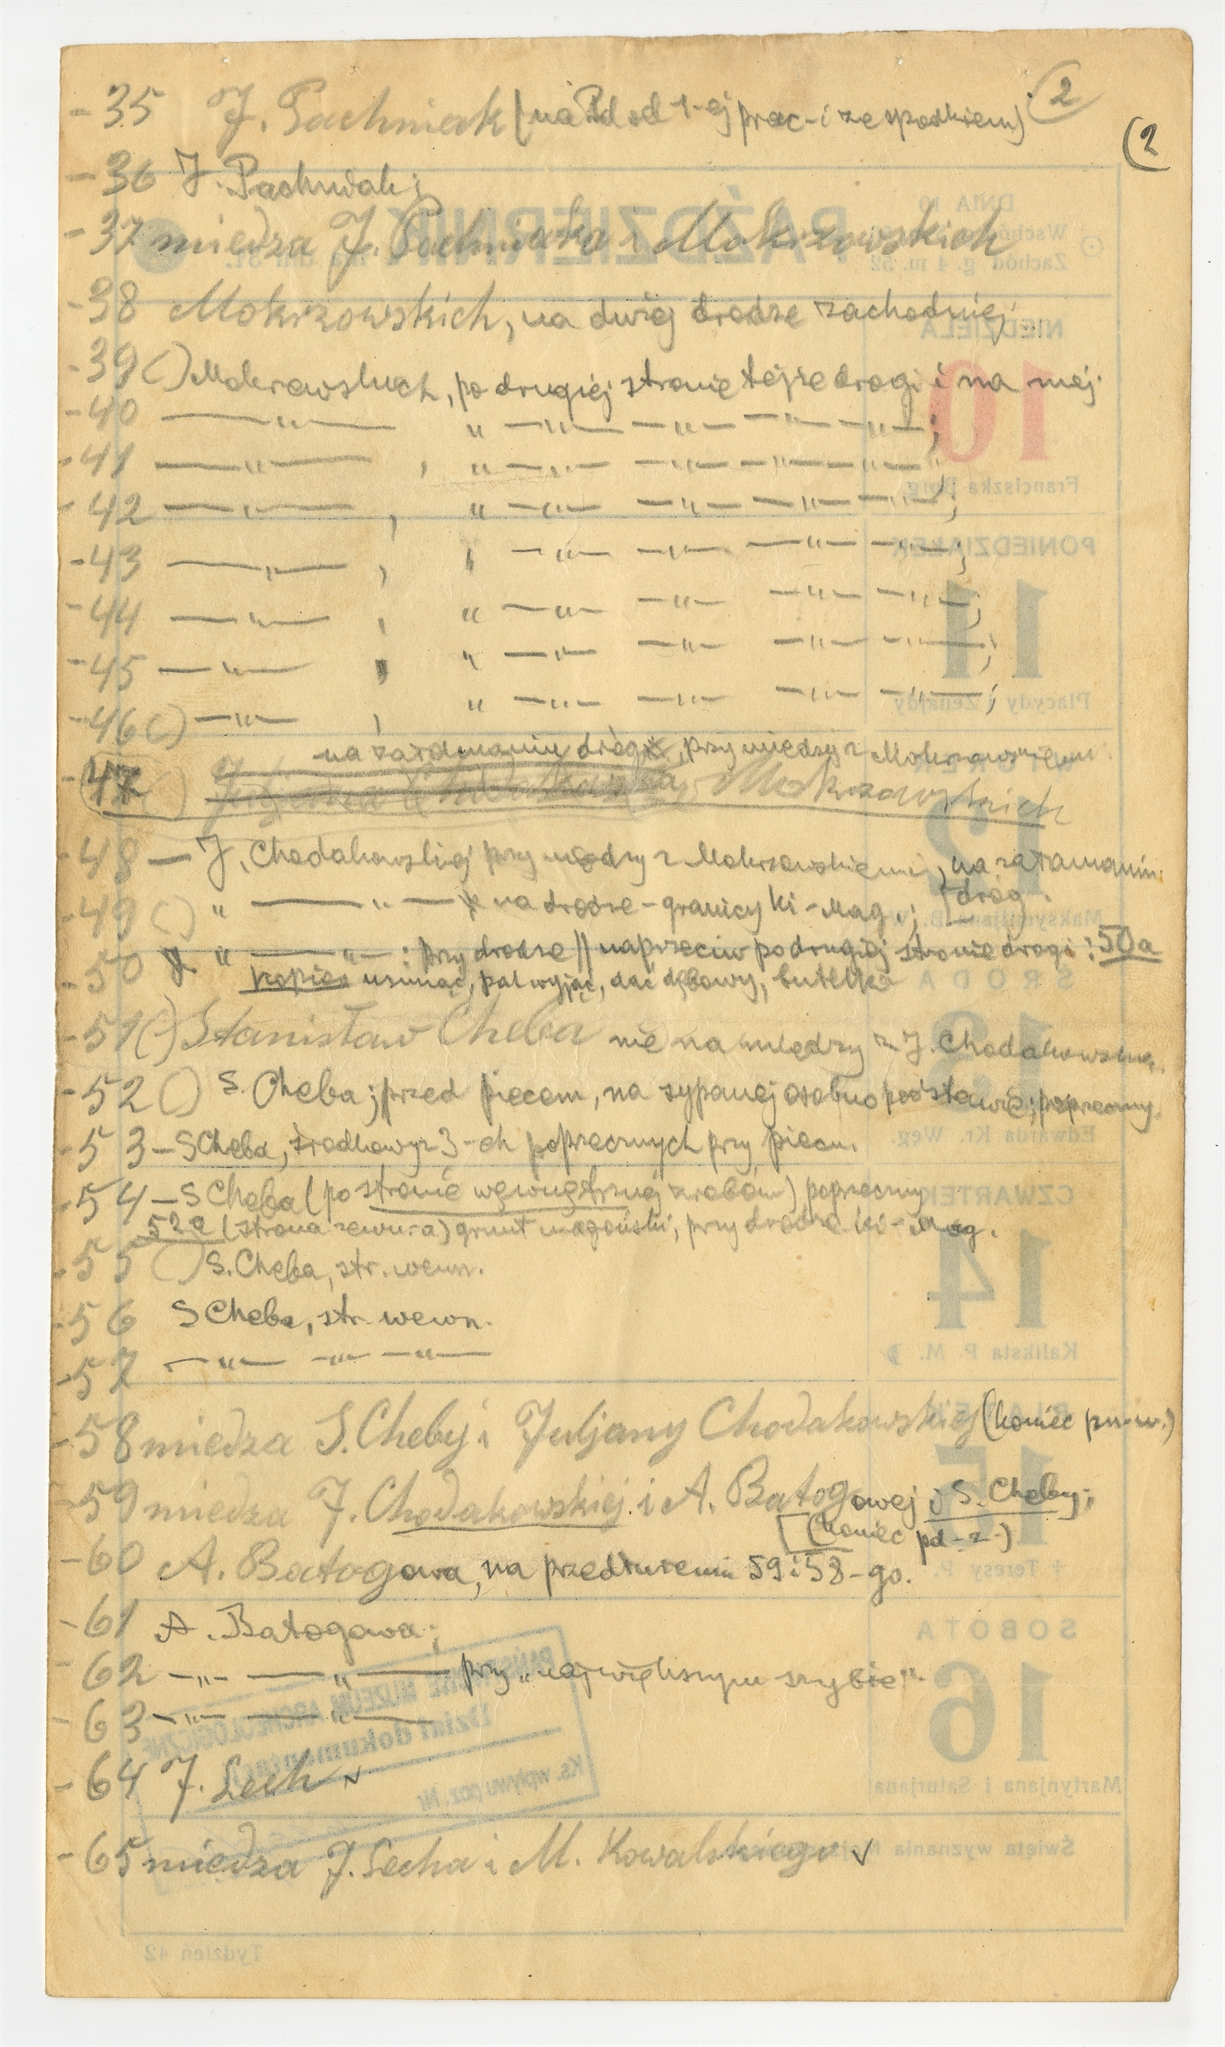 (2)
(2
-35 J. Pachniak (na Pd od 1-ej prac-i ze spodkiem)
-36 J. Pachniak;
-37 miedza J. Pachniaka i Mokrzowskich
-38 Mokrzowskich, na dwiej drodze zachodniej
-39 ( ) Mokrzowskich, po drugiej stronie tejże drogi i na niej
-40 —„— „ —„— —„— —„— —„—;
-41 —„— , „ —„— —„— —„— —„—;
-42 —„— , „ —„— —„— —„— —„—;
-43 —„— , , —„— —„— —„— —„—;
-44 —„— , „ —„— —„— —„— —„—;
-45 —„— , „ —„— —„— —„— —„—;
-46 ( ) —„— , „ —„— —„— —„— —„—;
na załamaniu dróg, przy miedzy z Mokrzowskiemi
-47 ( ) Mokrzowskich
-48 — J. Chodakowskiej przy miedzy z Mokrzowskiemi, na załamaniu
dróg.
-49 ( ) „ —„— na drodze-granicy Ki-Mag.;
-50 „ —„— : przy drodze // naprzeciw po drugiej stronie drogi: 50a
kopiec usunąć, pal wyjąć, dać dębowy, butelka
-51 (-) Stanisław Cheba nie na miedzy z J. Chodakowską
-52 ( ) S. Cheba; przed piecem, na sypanej osobno podstawie; poprzeczny
-53 — S Cheba, środkowy z 3-ch poprzecznych przy piecu.
-54 — S Cheba (po stronie wewnętrznej zrobów) poprzeczny
52a (strona zewn.) grunt magoński, przy drodze Ki-Mag.
-55 ( ) S. Cheba, str. wewn.
-56 S Cheba, str. wewn.
-57 —„— —„— —„—
-58 miedza S. Cheby i Juljany Chodakowskiej (koniec pn-w.)
-59 miedza J. Chodakowskiej i A. Batogowej i S. Cheby;
(koniec pd-z.)
-60 A. Batogowa, na przedłużeniu 59 i 58-go.
-61 A. Batogowa;
-62 —„— —„— przy „największym szybie".
-63 —„— —„—
-64 J. Lech ✓
-65 miedza J. Lecha i M. Kowalskiego ✓
PAŹDZIERNIK
DNIA 10
Zachód g. 4 m. 52
NIEDZIELA
10
Franciszka Borg.
PONIEDZIAŁEK
11
Placydy i Zenajdy
WTOREK
12
Maksymiljana B. W.
ŚRODA
13
Edwarda Kr. Weg.
CZWARTEK
14
Kaliksta P. M.
PIĄTEK
15
† Teresy P.
SOBOTA
16
Martynjana i Saturjana
Święta wyznania
Tydzień 42
PAŃSTWOWE MUZEUM ARCHEOLOGICZNE
Dział dokumentacji
Ks. wpływu poz. Nr